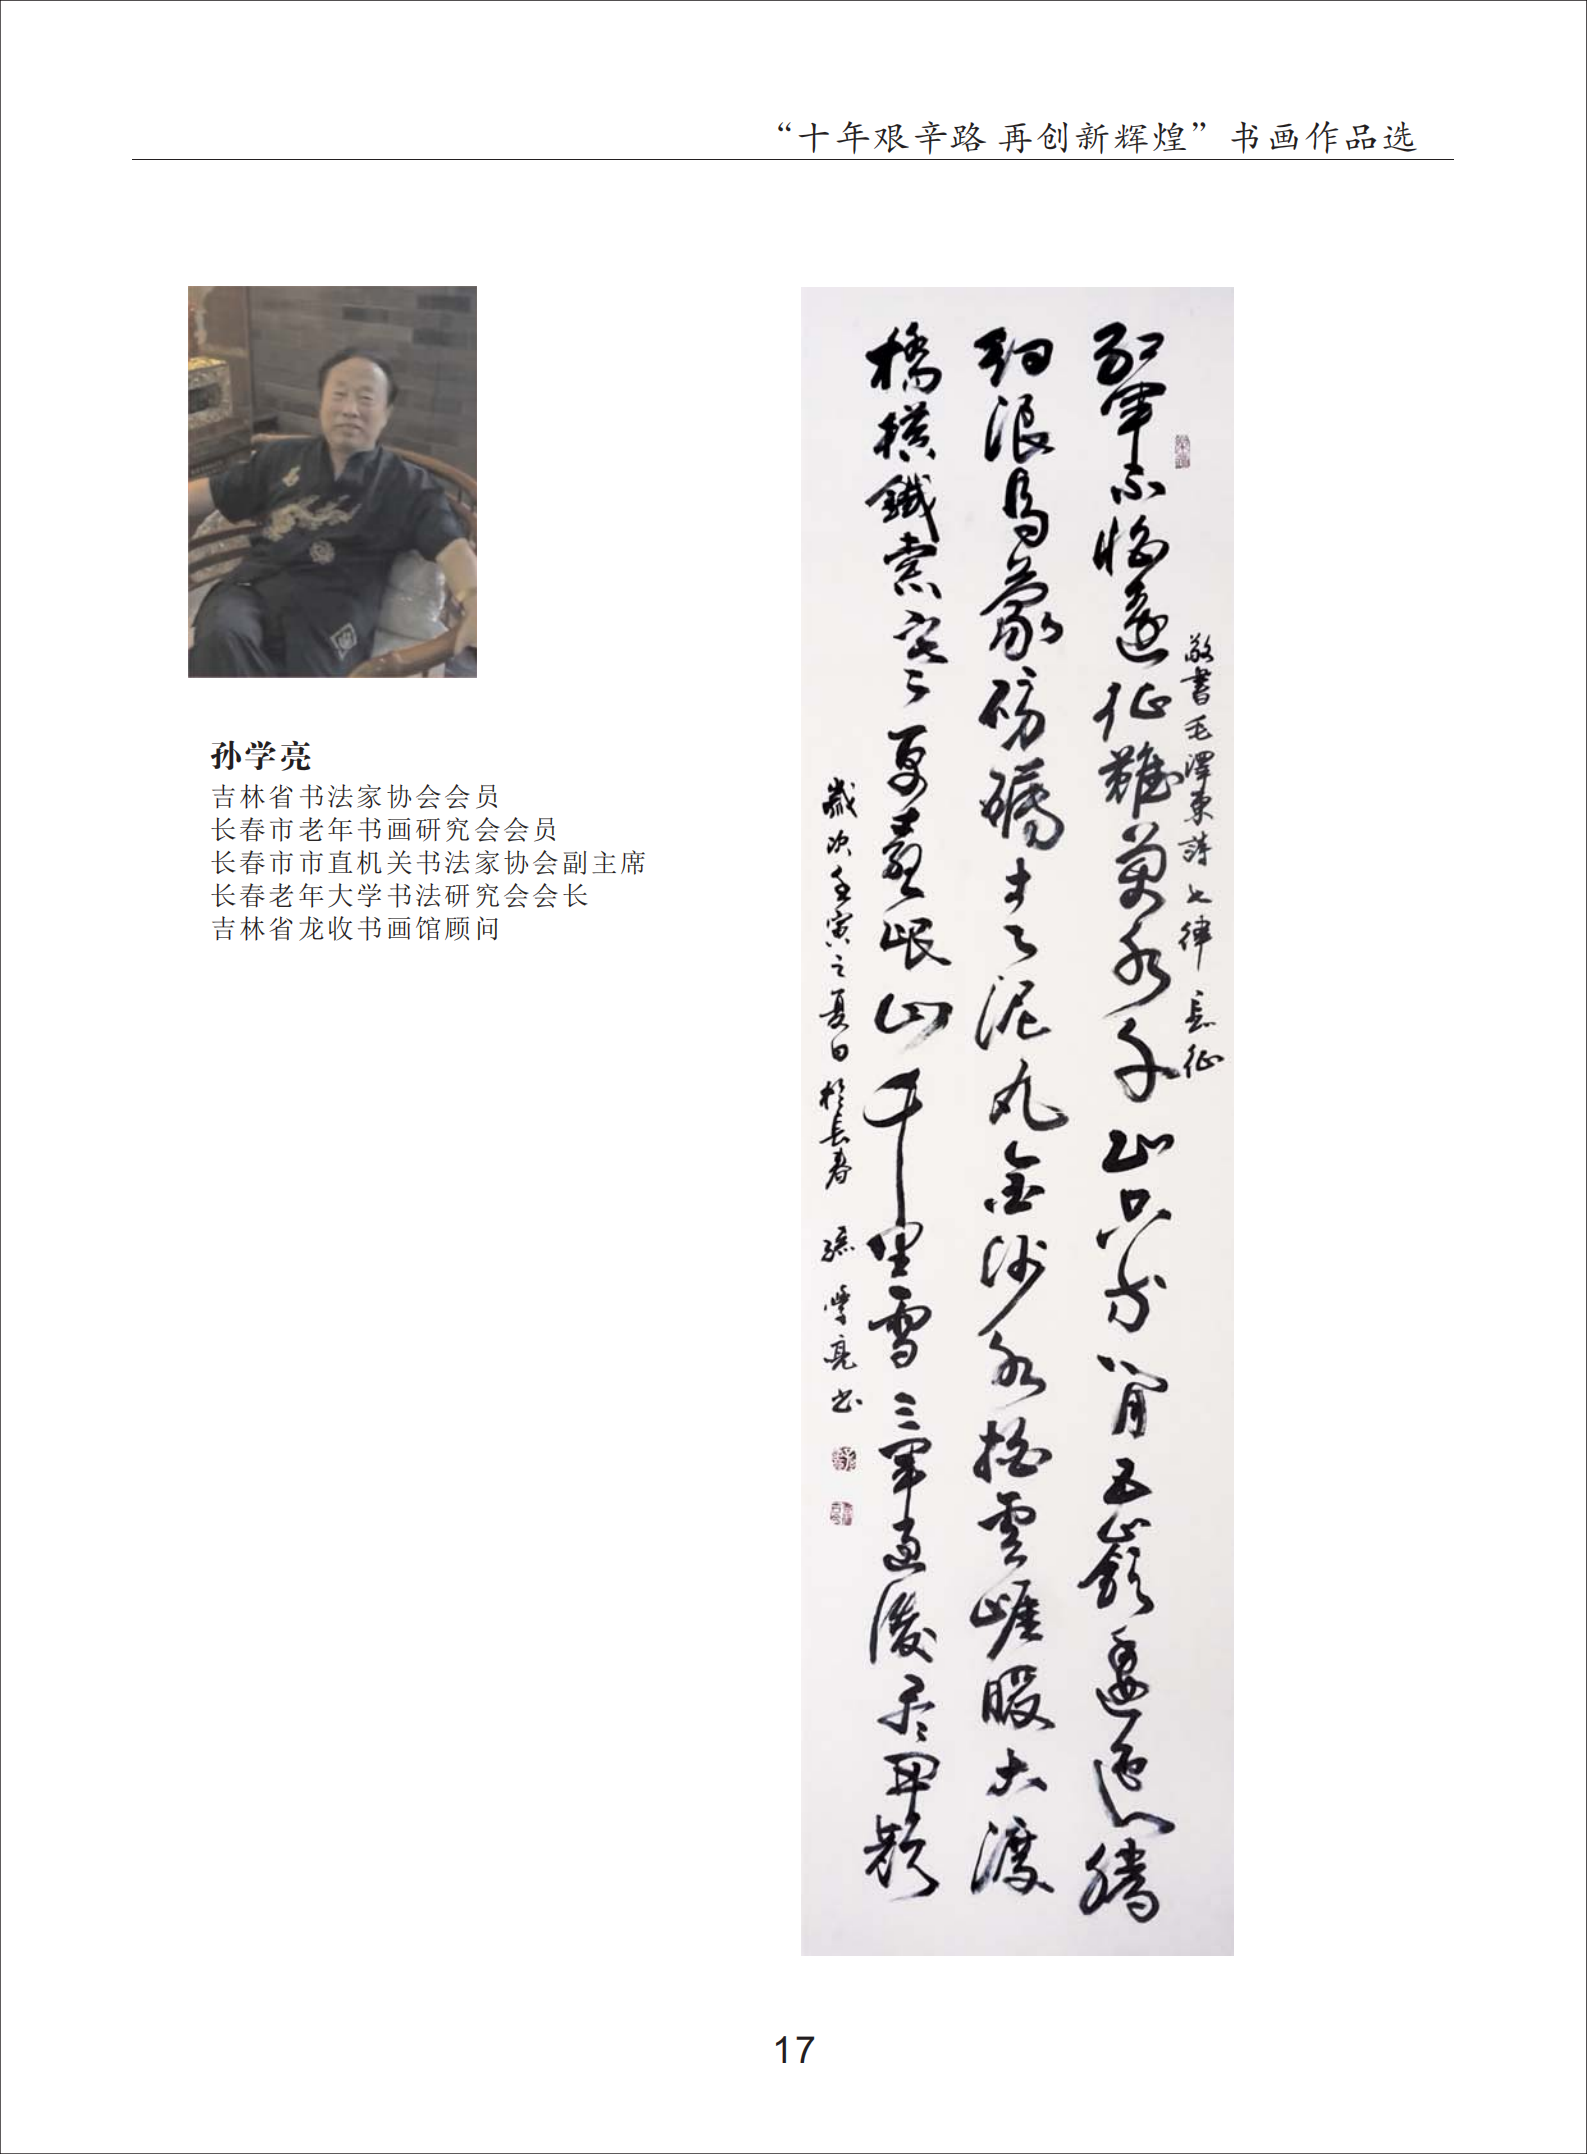 “十年艰辛路 再创新辉煌”书画作品选
孙学亮
吉林省书法家协会会员
长春市老年书画研究会会员
长春市市直机关书法家协会副主席
长春老年大学书法研究会会长
吉林省龙收书画馆顾问
敬書毛澤東詩七律 長征
紅軍不怕遠征難萬水千山只等閒五嶺逶迤騰
細浪烏蒙磅礴走泥丸金沙水拍雲崖暖大渡
橋横鐵索寒更喜岷山千里雪三軍過後盡開顏
歲次壬寅之夏日於長春 孫學亮书
17